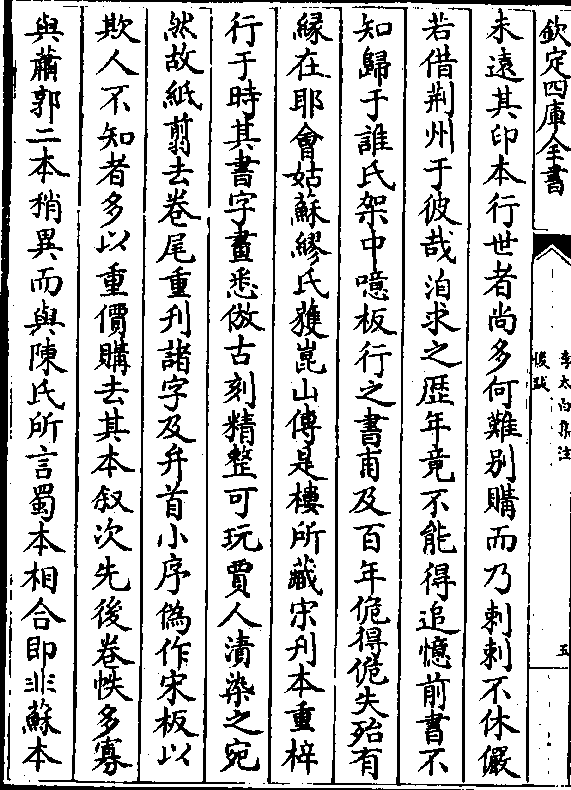 欽定四庫全書
李太白集注
後跋
五
未遠其印本行世者尚多何難别購而乃剌剌不休儼
若借荆州于彼哉洎求之歴年竟不能得追憶前書不
知歸于誰氏架中噫板行之書甫及百年㑌得㑌失殆有
縁在耶會姑蘇繆氏獲崑山傳是樓所藏宋刋本重梓
行于時其書字畫悉倣古刻精整可玩賈人漬染之宛
然故紙翦去卷尾重刋諸字及弁首小序偽作宋板以
欺人不知者多以重價購去其本叙次先後卷帙多寡
與蕭郭二本稍異而與陳氏所言蜀本相合即非蘇本